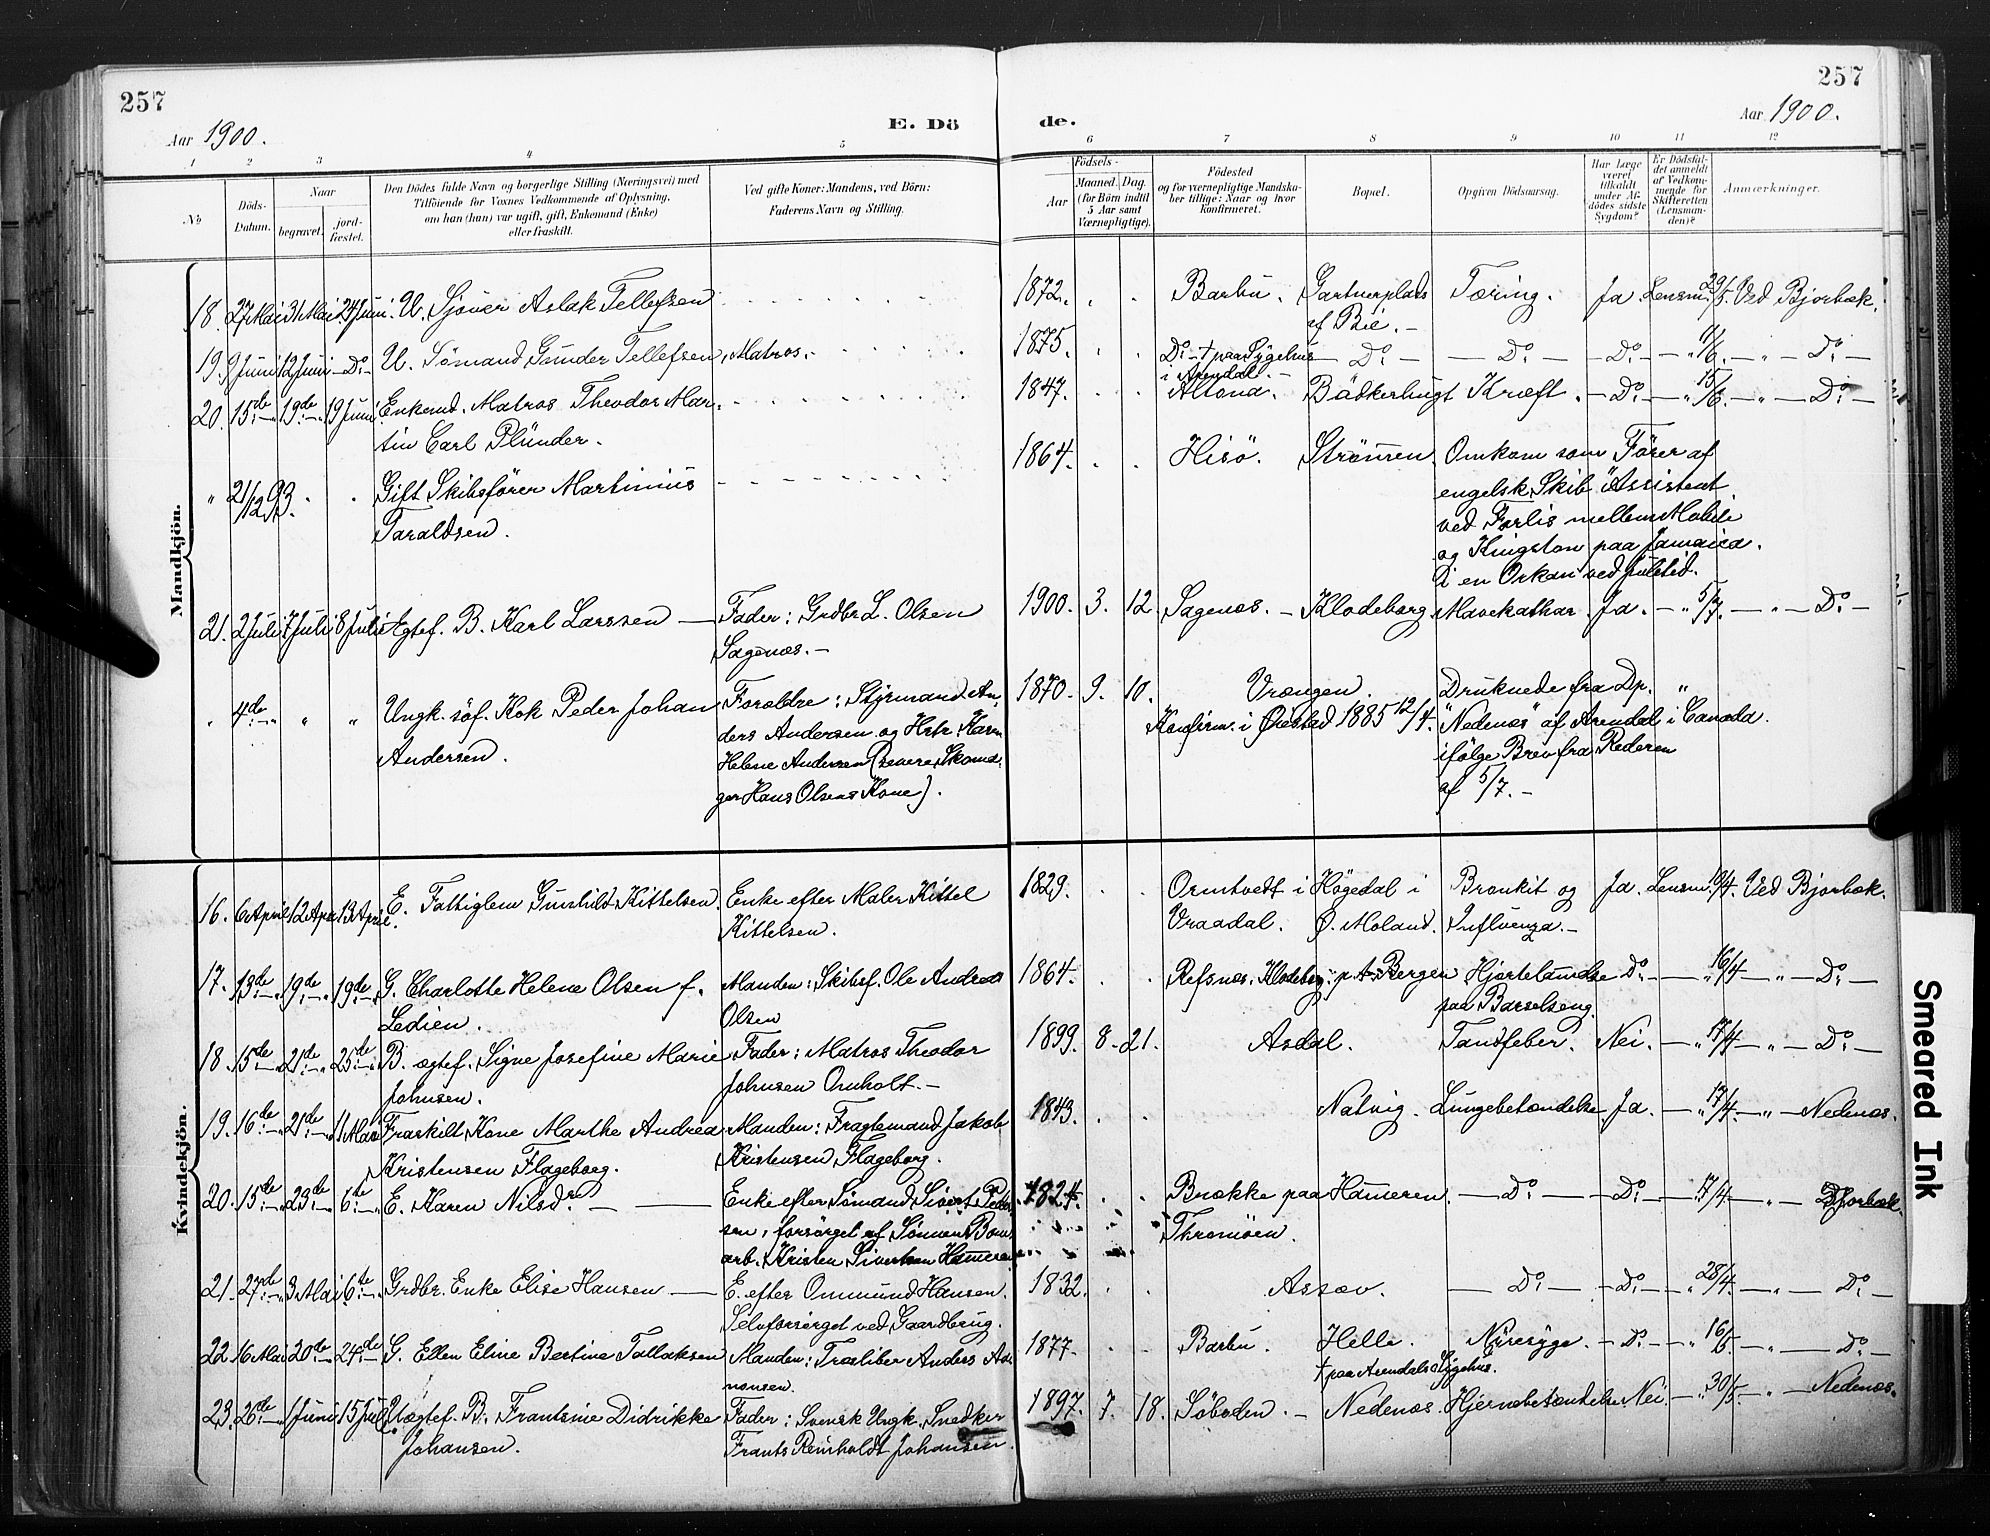 257
257
Aar 1900.
E. Dö
de.
Aar 1900.
1 2 3 4 5 6 7 8 9 10 11 12
No
Döds-Datum.
Naar
begravet.
jord-fæstet.
Den Dödes fulde Navn og borgerlige Stilling (Næringsvei) med
Tilföiende for Voxnes Vedkommende af Oplysning,
om han (hun) var ugift, gift, Enkemand (Enke)
eller fraskilt.
Ved gifte Koner: Mandens, ved Börn:
Faderens Navn og Stilling.
Födsels-
Aar
Maaned. Dag.
(for Börn indtil
5 Aar samt
Værnepligtige).
Födested
og for værnepligtige Mandska-
ber tillige: Naar og hvor
konfirmeret.
Bopæl.
Opgiven Dödsaarsag.
Har Læge
været
tilkaldt
under Af-
dödes sidste
Sygdom?
Er Dödsfal-
det anmeldt
af Vedkom-
mende for
Skifteretten
(Lensman-
den)?
Anmærkninger.
Mandkjön.
18. 27 Mai 31 Mai 24 Juni U. Sjöuer Aslak Tellefsen 1872. Barbu. Gartnerplads Tæring. Ja Lensm. 29/5. Ved Bjorbæk.
af Bie. -
19. 9 Juni 12 Juni - Do - U. Sömand Gunder Tellefsen, Matros. 1875. Do - † paa Sygehus - Do - - Do - - Do - " 11/6. - " - Do -
i Arendal. -
20. 15de 19de 19 Juni Enkemd. Matros Theodor Mar- 1847. Altona. Bödkerhugt Kræft. - Do - " 15/6. - " - Do -
tin Carl Plünder.
" 21/12 93. Gift Skibsförer Martinius 1864. Hisö. Strömen. Omkom som Förer af
Taraldsen. engelsk Skib "Assistent
ved Forlis mellem Mobile
og Kingston paa Jamaica.
I en Orkan ved Juletid.
21. 2 Juli 7 Juli 8 Juli Egtef. B. Karl Larssen - Fader: Grdbr. L. Olsen 1900. 3. 12. Sagenæs. - Klodeborg Mavekathar. Ja. - " 5/7. - " - Do -
Sagenæs. -
" 4de " " Ungk. söf. Kok Peder Johan Forældre: Styrmand An- 1870. 9. 10. Vrængen. Druknede fra Dp. "
Andersen. ders Andersen og Hstr. Karen Konfirm. i Øiestad 1885 12/4. "Nedenæs" af Arendal i Canada.
Helene Andersen (senere Skoma- ifölge Brev fra Rederen
ger Hans Olsens Kone). af 5/7. -
Kvindekjön.
16. 6 April 12 April 13 April. E. Fattiglem Gunhild Kittelsen. Enke efter Maler Kittel 1829. Ormtvedt i Högedal i Bronkit og Ja. Lensm. 10/4. Ved Bjorbæk.
Kittelsen. Vraadal. Ø. Moland. Influenza. -
17. 13de 19de 19de G. Charlotte Helene Olsen f. Manden: Skibsf. Ole Andreas 1864. Refsnæs, Klodeborg p. A. Bergen Hjertelamelse Do. - " 16/4 - " - Do -
Ledien. Olsen paa Barselseng.
18. 15de 21de 25de B. ægtef. Signe Josefine Marie Fader: Matros Theodor 1899. 8. 21. Asdal. Tandfeber. Nei. - " 17/4 - " - Do -
Johnsen. Johnsen Omholt. -
19. 16de 21de 11 Mai Fraskilt Kone Marthe Andrea Manden: Fragtemand Jakob 1843. Natvig. Lungebetændelse Ja. - " 17/4 - " - Nedenæs.
Kristensen Flageborg. Kristensen Flageborg.
20. 15de 23de 6te E. Karen Nilsdr. - Enke efter Sömand Sivert Peder- 1824. Brække paa Hameren. - Do - - Do - " 17/4 - " - Bjorbæk.
sen, forsörget af Sönnen Bom- Thromöen.
arb. Kristen Sivertsen Hameren.
21. 27de 3 Mai 6te Grdbr. Enke Elise Hansen - E. efter Onmund Hansen. 1832. Assæv. - Do - - Do - " 28/4. - " - Do -
Selvforsörget ved Gaardbrug.
22. 16 Mai 20de 24de G. Ellen Eline Bertine Tallaksen Manden: Træliber Anders Aa- 1877. Barbu. Helle. Nyresyge. - Do - " 16/5 - " - Do -
nonsen. † paa Arendals Sygehus.
23. 26de 1 Juni 15 Juli Uægtef. B. Frantsine Didrikke Fader: Svensk Ungk. Snedker 1897. 7. 18. Söboden. - Nedenæs. Hjernebetændelse Nei. - " 30/5. - " - Nedenæs.
Johansen. Frants Reinholdt Johansen.
Smeared Ink